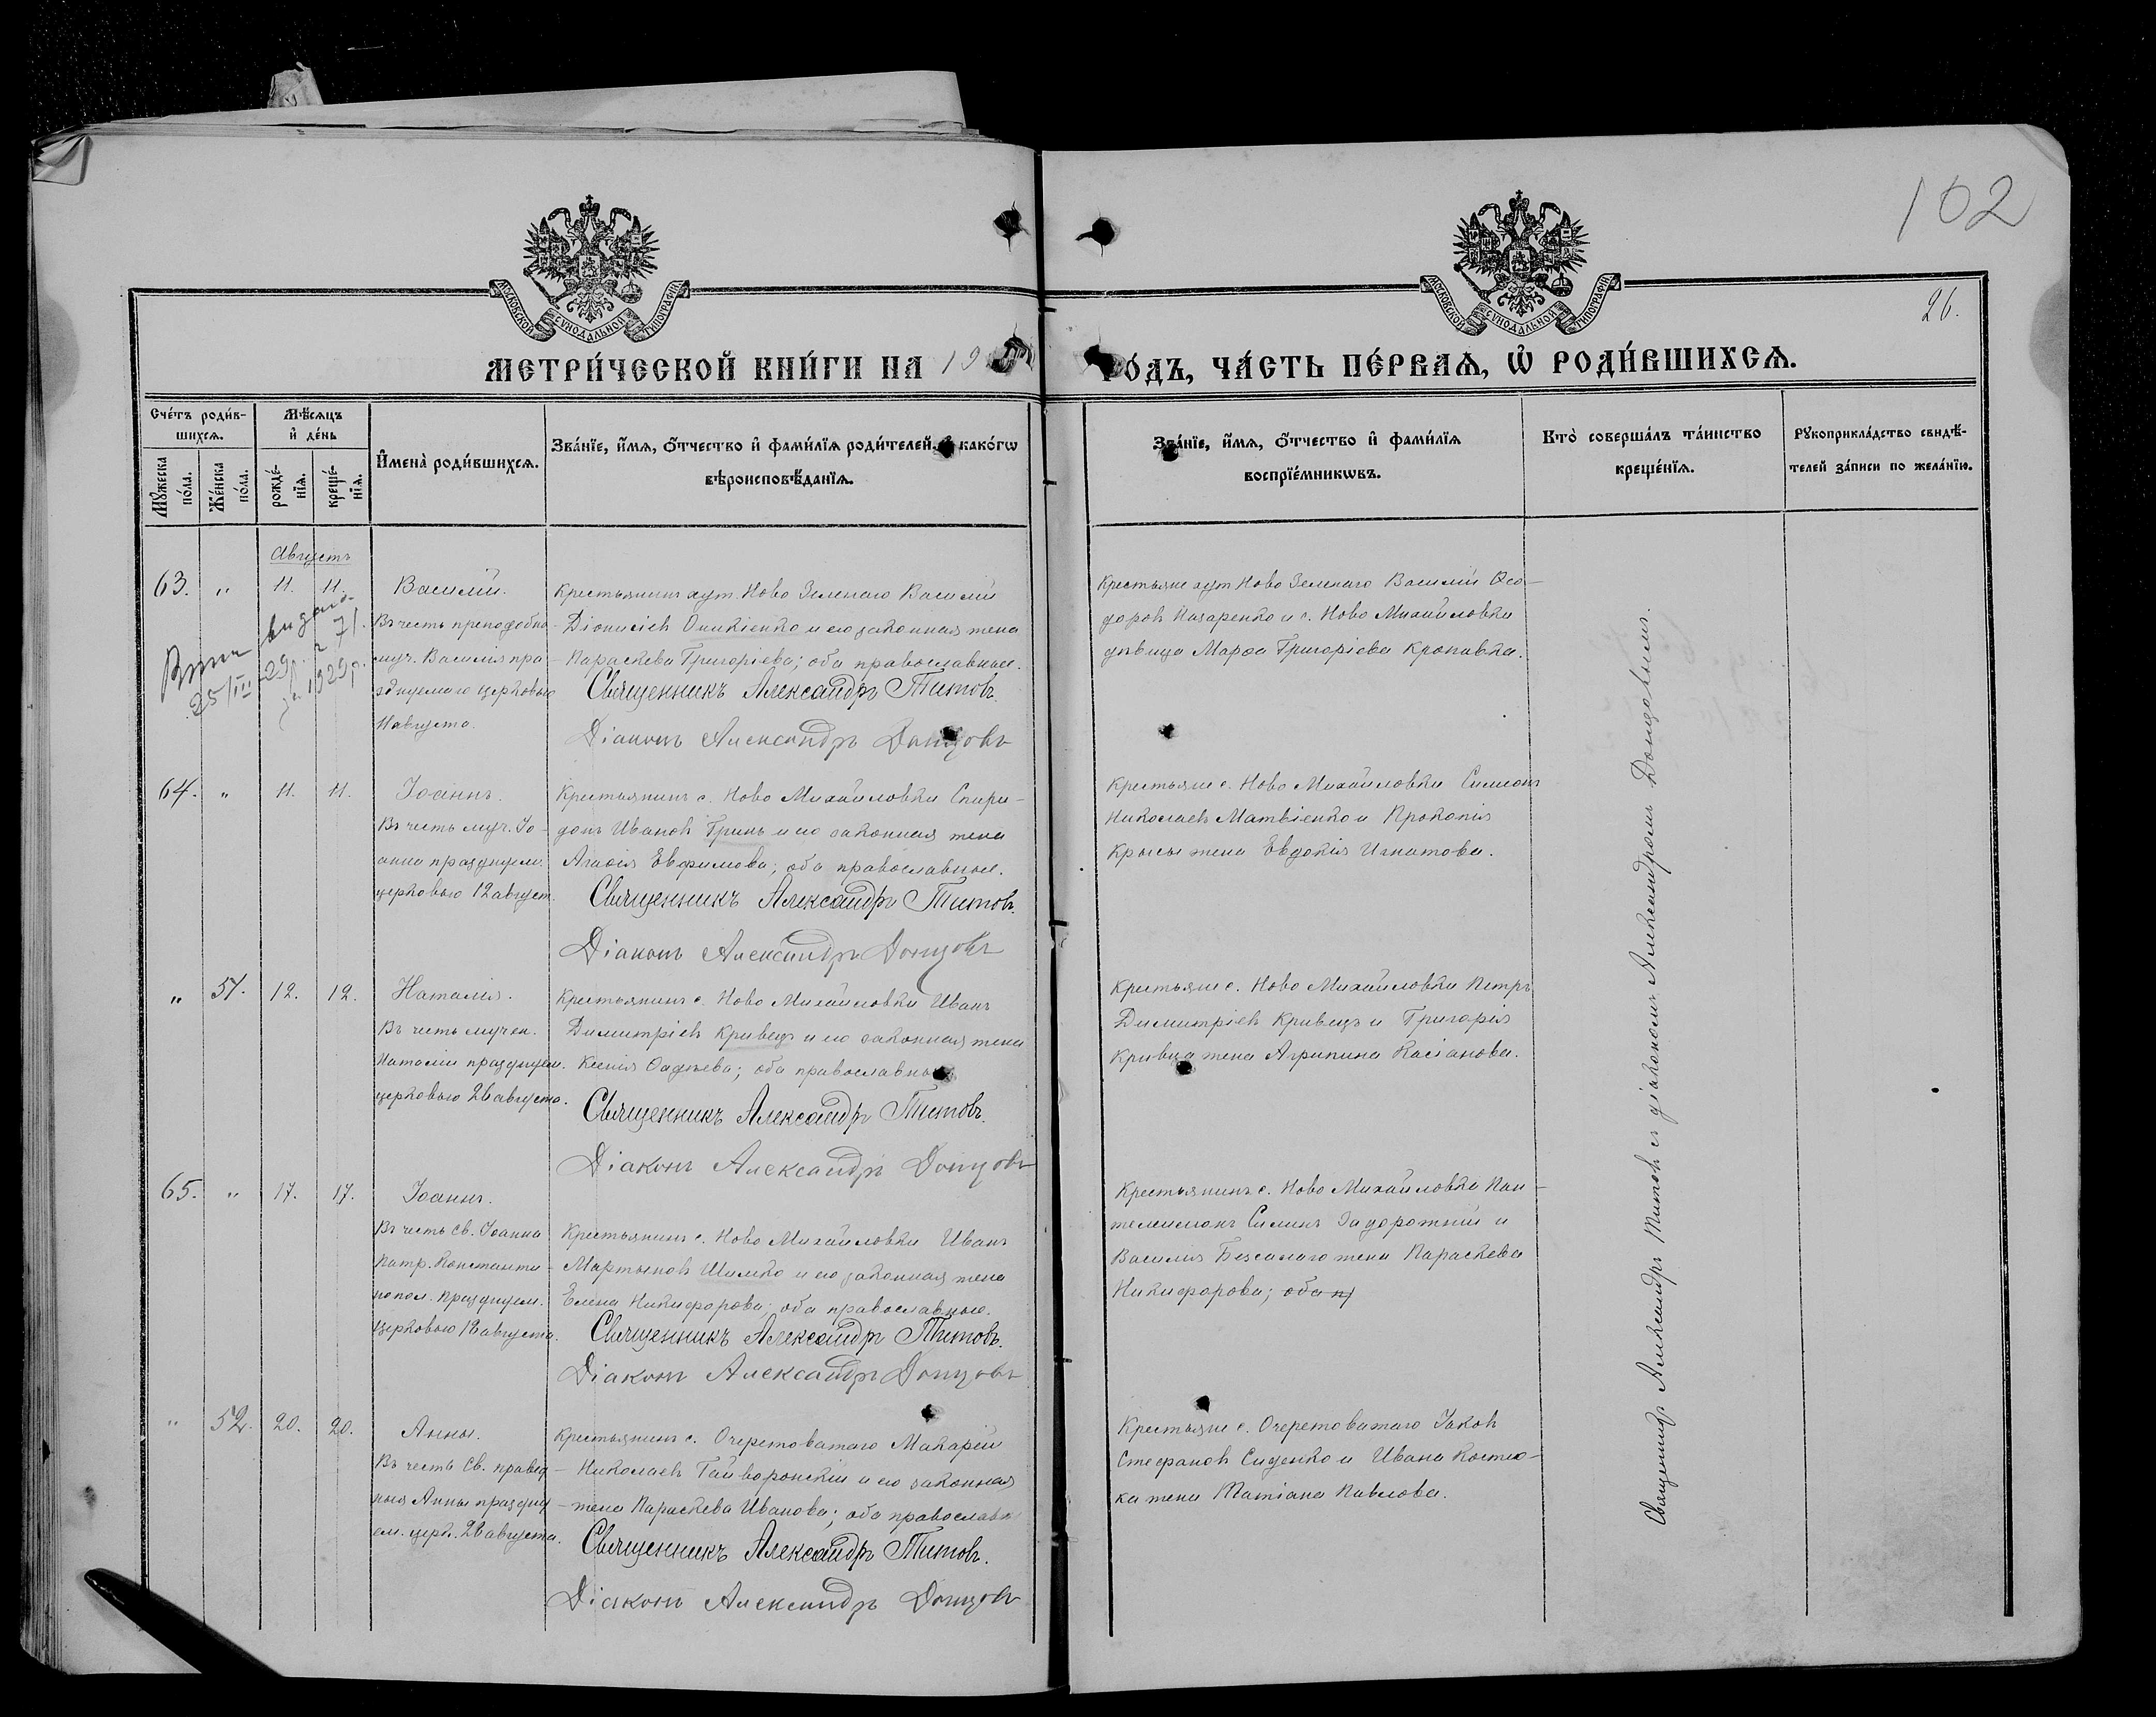 102
МОСКОВСКОЙ СѴНОДАЛЬНОЙ ТИПОГРАФІИ
МОСКОВСКОЙ СѴНОДАЛЬНОЙ ТИПОГРАФІИ
26.
МЕТРИ́ЧЕСКОЙ КНИ́ГИ НА 19
ГО́ДЪ, ЧА́СТЬ ПЕ́РВАѦ, Ѡ҆ РОДИ́ВШИХСѦ.
Сче́тъ роди́в-
шихсѧ.
Мꙋ́жеска по́ла.
Же́нска по́ла.
Мѣ́сѧцъ
и҆ де́нь
рожде́-
нїѧ.
креще́-
нїѧ.
И҆мена̀ роди́вшихсѧ.
Зва́нїе, и҆́мѧ, ѻ҆́тчество и҆ фами́лїѧ роди́телей, и҆ како́гѡ
вѣроисповѣ́данїѧ.
Зва́нїе, и҆́мѧ, ѻ҆́тчество и҆ фами́лїѧ
воспрїе́мникѡвъ.
Кто̀ соверша́лъ та́инство
креще́нїѧ.
Рꙋкоприкла́дство свидѣ́-
телей за́писи по жела́нїю.
Августъ
63. " 11. 11. Василій.
Въ честь преподобно-
муч. Василія пра-
зднуемаго церковью
11 августа.
25/III 29 р.
Крестьянинъ хут. Ново Зеленаго Василій
Діонисіевъ Оникіенко и его законная жена
Параскева Григоріева; оба православные.
Священникъ Александръ Титовъ.
Діаконъ Александръ Донцовъ
Крестьяне хут. Ново Зеленаго Василій Ѳео-
доровъ Назаренко и с. Ново Михайловки
дѣвица Марѳа Григоріева Кропивка.
64. " 11. 11. Іоаннъ.
Въ честь муч. Іо-
анна празднуем.
церковью 12 август.
Крестьянинъ с. Ново Михайловки Спири-
донъ Ивановъ Гринь и его законная жена
Агаѳія Евфимова; оба православные.
Священникъ Александръ Титовъ.
Діаконъ Александръ Донцовъ
Крестьяне с. Ново Михайловки Симеонъ
Николаевъ Матвіенко и Прокопія
Крысы жена Евдокія Игнатова.
" 51. 12. 12. Наталія.
Въ честь мучен.
Наталіи празднуем.
церковью 26 августа.
Крестьянинъ с. Ново Михайловки Иванъ
Димитріевъ Кривецъ и его законная жена
Ксенія Ѳадѣева; оба православные.
Священникъ Александръ Титовъ.
Діаконъ Александръ Донцовъ
Крестьяне с. Ново Михайловки Петръ
Димитріевъ Кривецъ и Григорія
Кривца жена Агрипина Касіанова.
65. " 17. 17. Іоаннъ.
Въ честь св. Іоанна
Патр. Константи-
нопол. празднуем.
церковью 18 августа.
Крестьянинъ с. Ново Михайловки Иванъ
Мартыновъ Шилко и его законная жена
Елена Никифорова; оба православные.
Священникъ Александръ Титовъ.
Діаконъ Александръ Донцовъ
Крестьянинъ с. Ново Михайловки Пан-
телеимонъ Силинъ Задорожній и
Василія Безсалаго жена Параскева
Никифорова; оба п
" 52. 20. 20. Анна.
Въ честь св. правед-
ныя Анны праздну-
ем. церк. 28 августа.
Крестьянинъ с. Очеретоватаго Макарій
Николаевъ Гайворонскій и его законная
жена Параскева Иванова; оба православн
Священникъ Александръ Титовъ.
Діаконъ Александръ Донцовъ
Крестьяне с. Очеретоватаго Іаковъ
Стефановъ Сиденко и Ивана Костю-
ка жена Татіана Павлова.
Священникъ Александръ Титовъ съ діакономъ Александромъ Донцовымъ.